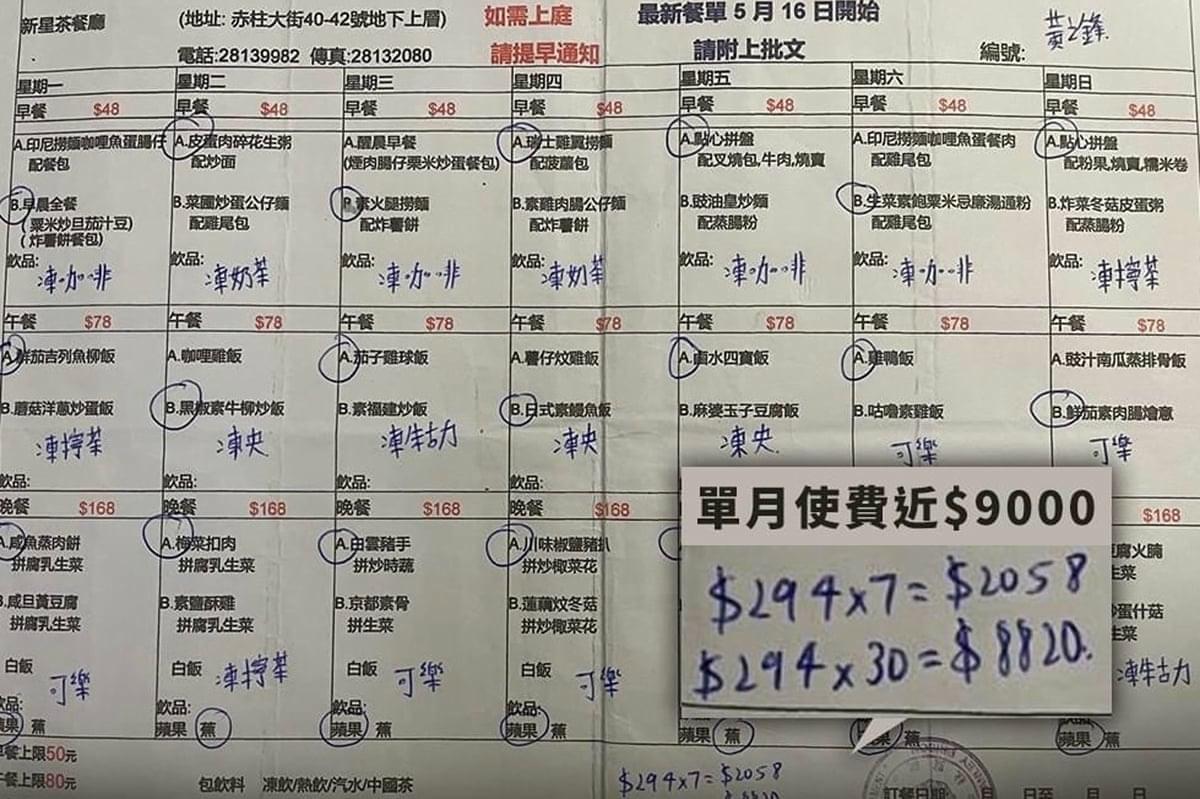 新星茶餐廳 (地址: 赤柱大街40-42號地下上層) 如需上庭 最新餐單 5 月 16 日開始 黃之鋒
電話:28139982 傳真:28132080 請提早通知 請附上批文 編號:
星期一 星期二 星期三 星期四 星期五 星期六 星期日
早餐 $48 早餐 $48 早餐 $48 早餐 $48 早餐 $48 早餐 $48 早餐 $48
A.印尼撈麵咖哩魚蛋腸仔 A.皮蛋肉碎花生粥 A.醒晨早餐 A.瑞士雞翼撈麵 A.點心拼盤 A.印尼撈麵咖哩魚蛋餐肉 A.點心拼盤
配餐包 配炒面 (煙肉腸仔栗米炒蛋餐包) 配菠蘿包 配叉燒包,牛肉,燒賣 配雞尾包 配粉果,燒賣,糯米卷
B.早晨全餐 B.菜圃炒蛋公仔麵 B.素火腿撈麵 B.素雞肉腸公仔麵 B.豉油皇炒麵 B.生菜素飽粟米忌廉湯通粉 B.炸菜冬菇皮蛋粥
(粟米炒旦茄汁豆) 配雞尾包 配炸薯餅 配炸薯餅 配蒸腸粉 配雞尾包 配蒸腸粉
(炸薯餅餐包)
飲品: 飲品: 飲品: 飲品: 飲品: 飲品: 飲品:
凍咖啡 凍奶茶 凍咖啡 凍奶茶 凍咖啡 凍咖啡 凍檸茶
午餐 $78 午餐 $78 午餐 $78 午餐 $78 午餐 $78 午餐 $78 午餐 $78
A.鮮茄吉列魚柳飯 A.咖哩雞飯 A.茄子雞球飯 A.薯仔炆雞飯 A.鹵水四寶飯 A.雞鴨飯 A.豉汁南瓜蒸排骨飯
B.蘑菇洋蔥炒蛋飯 B.黑椒素牛柳炒飯 B.素福建炒飯 B.日式素鰻魚飯 B.麻婆玉子豆腐飯 B.咕嚕素雞飯 B.鮮茄素肉腸燴意
凍檸茶 凍央 凍朱古力 凍央 凍央 可樂 可樂
飲品: 飲品: 飲品: 飲品:
晚餐 $168 晚餐 $168 晚餐 $168 晚餐 $168 $168
A.咸魚蒸肉餅 A.梅菜扣肉 A.白雲豬手 A.川味椒鹽豬扒 腐火腩
拼腐乳生菜 拼腐乳生菜 拼炒時蔬 拼炒椰菜花 生菜
B.咸旦黃豆腐 B.素鹽酥雞 B.京都素骨 B.蓮藕炆冬菇 炒蛋什菇
拼腐乳生菜 拼腐乳生菜 拼生菜 拼炒椰菜花 生菜
白飯 白飯 白飯 白飯
可樂 凍檸茶 可樂 可樂 凍朱古力
飲品: 飲品: 飲品: 飲品: 飲品:
蘋果 蕉 蘋果 蕉 蘋果 蕉 蘋果 蕉 蘋果 蕉 蘋果 蕉 蘋果 蕉
單月使費近$9000
$294x7=$2058
$294x30=$8820.
早餐上限50元
午餐上限80元 包飲料 凍飲/熱飲/汽水/中國茶
$294x7=$2058
$8820
訂餐日期: 月 日至 月 日